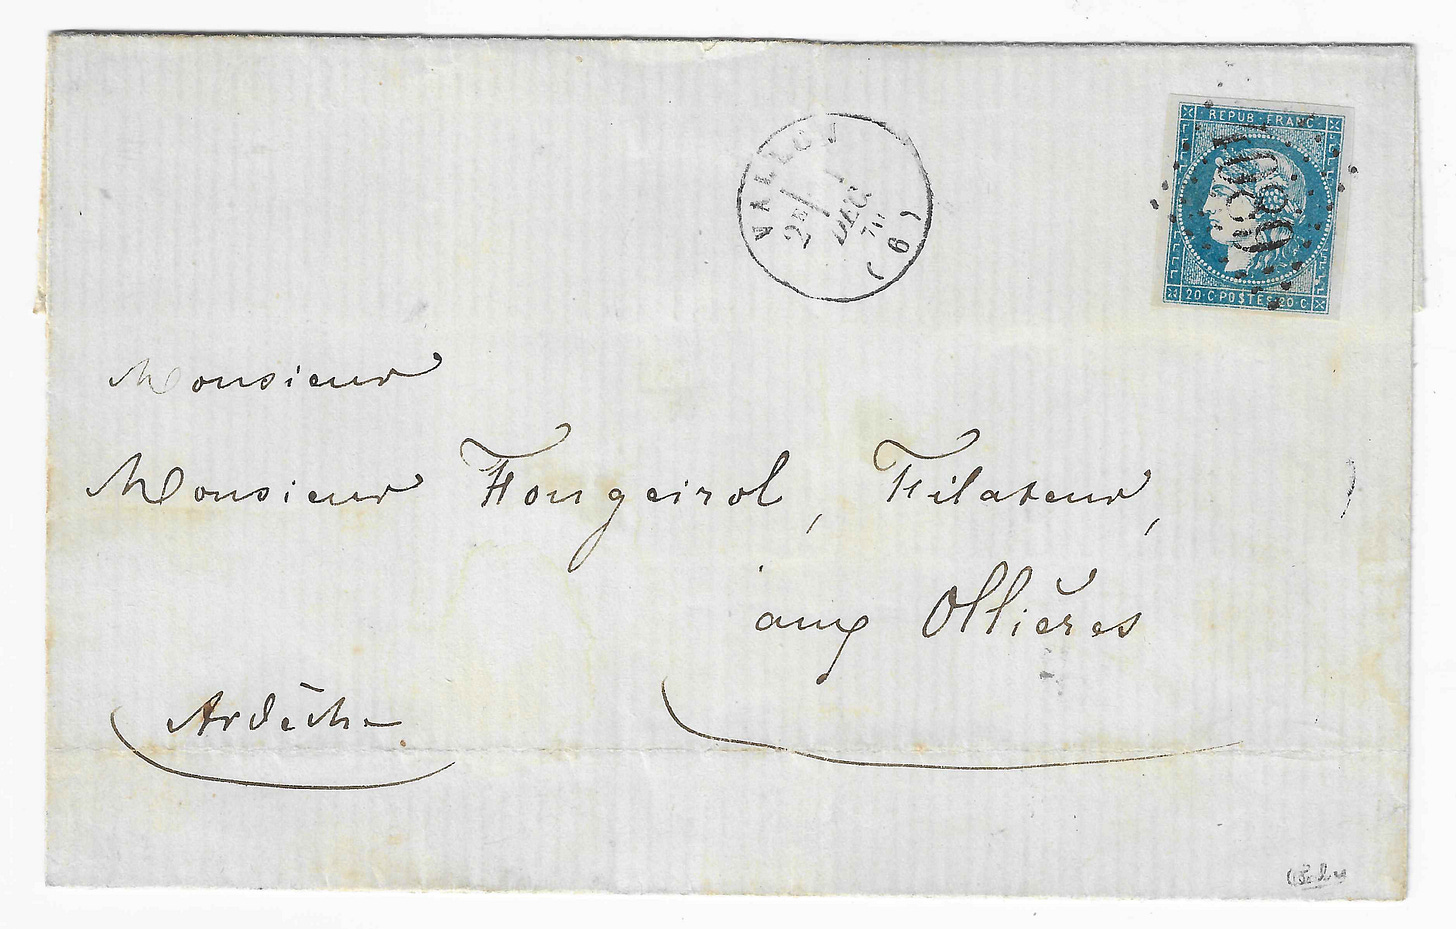 VALLON
2E 1
DEC.
70
(6)
REPUB·FRANC
4089
20·C·POSTES·20·C
Monsieur
Monsieur Fougeirol, Filateur,
aux Ollières
Ardèche